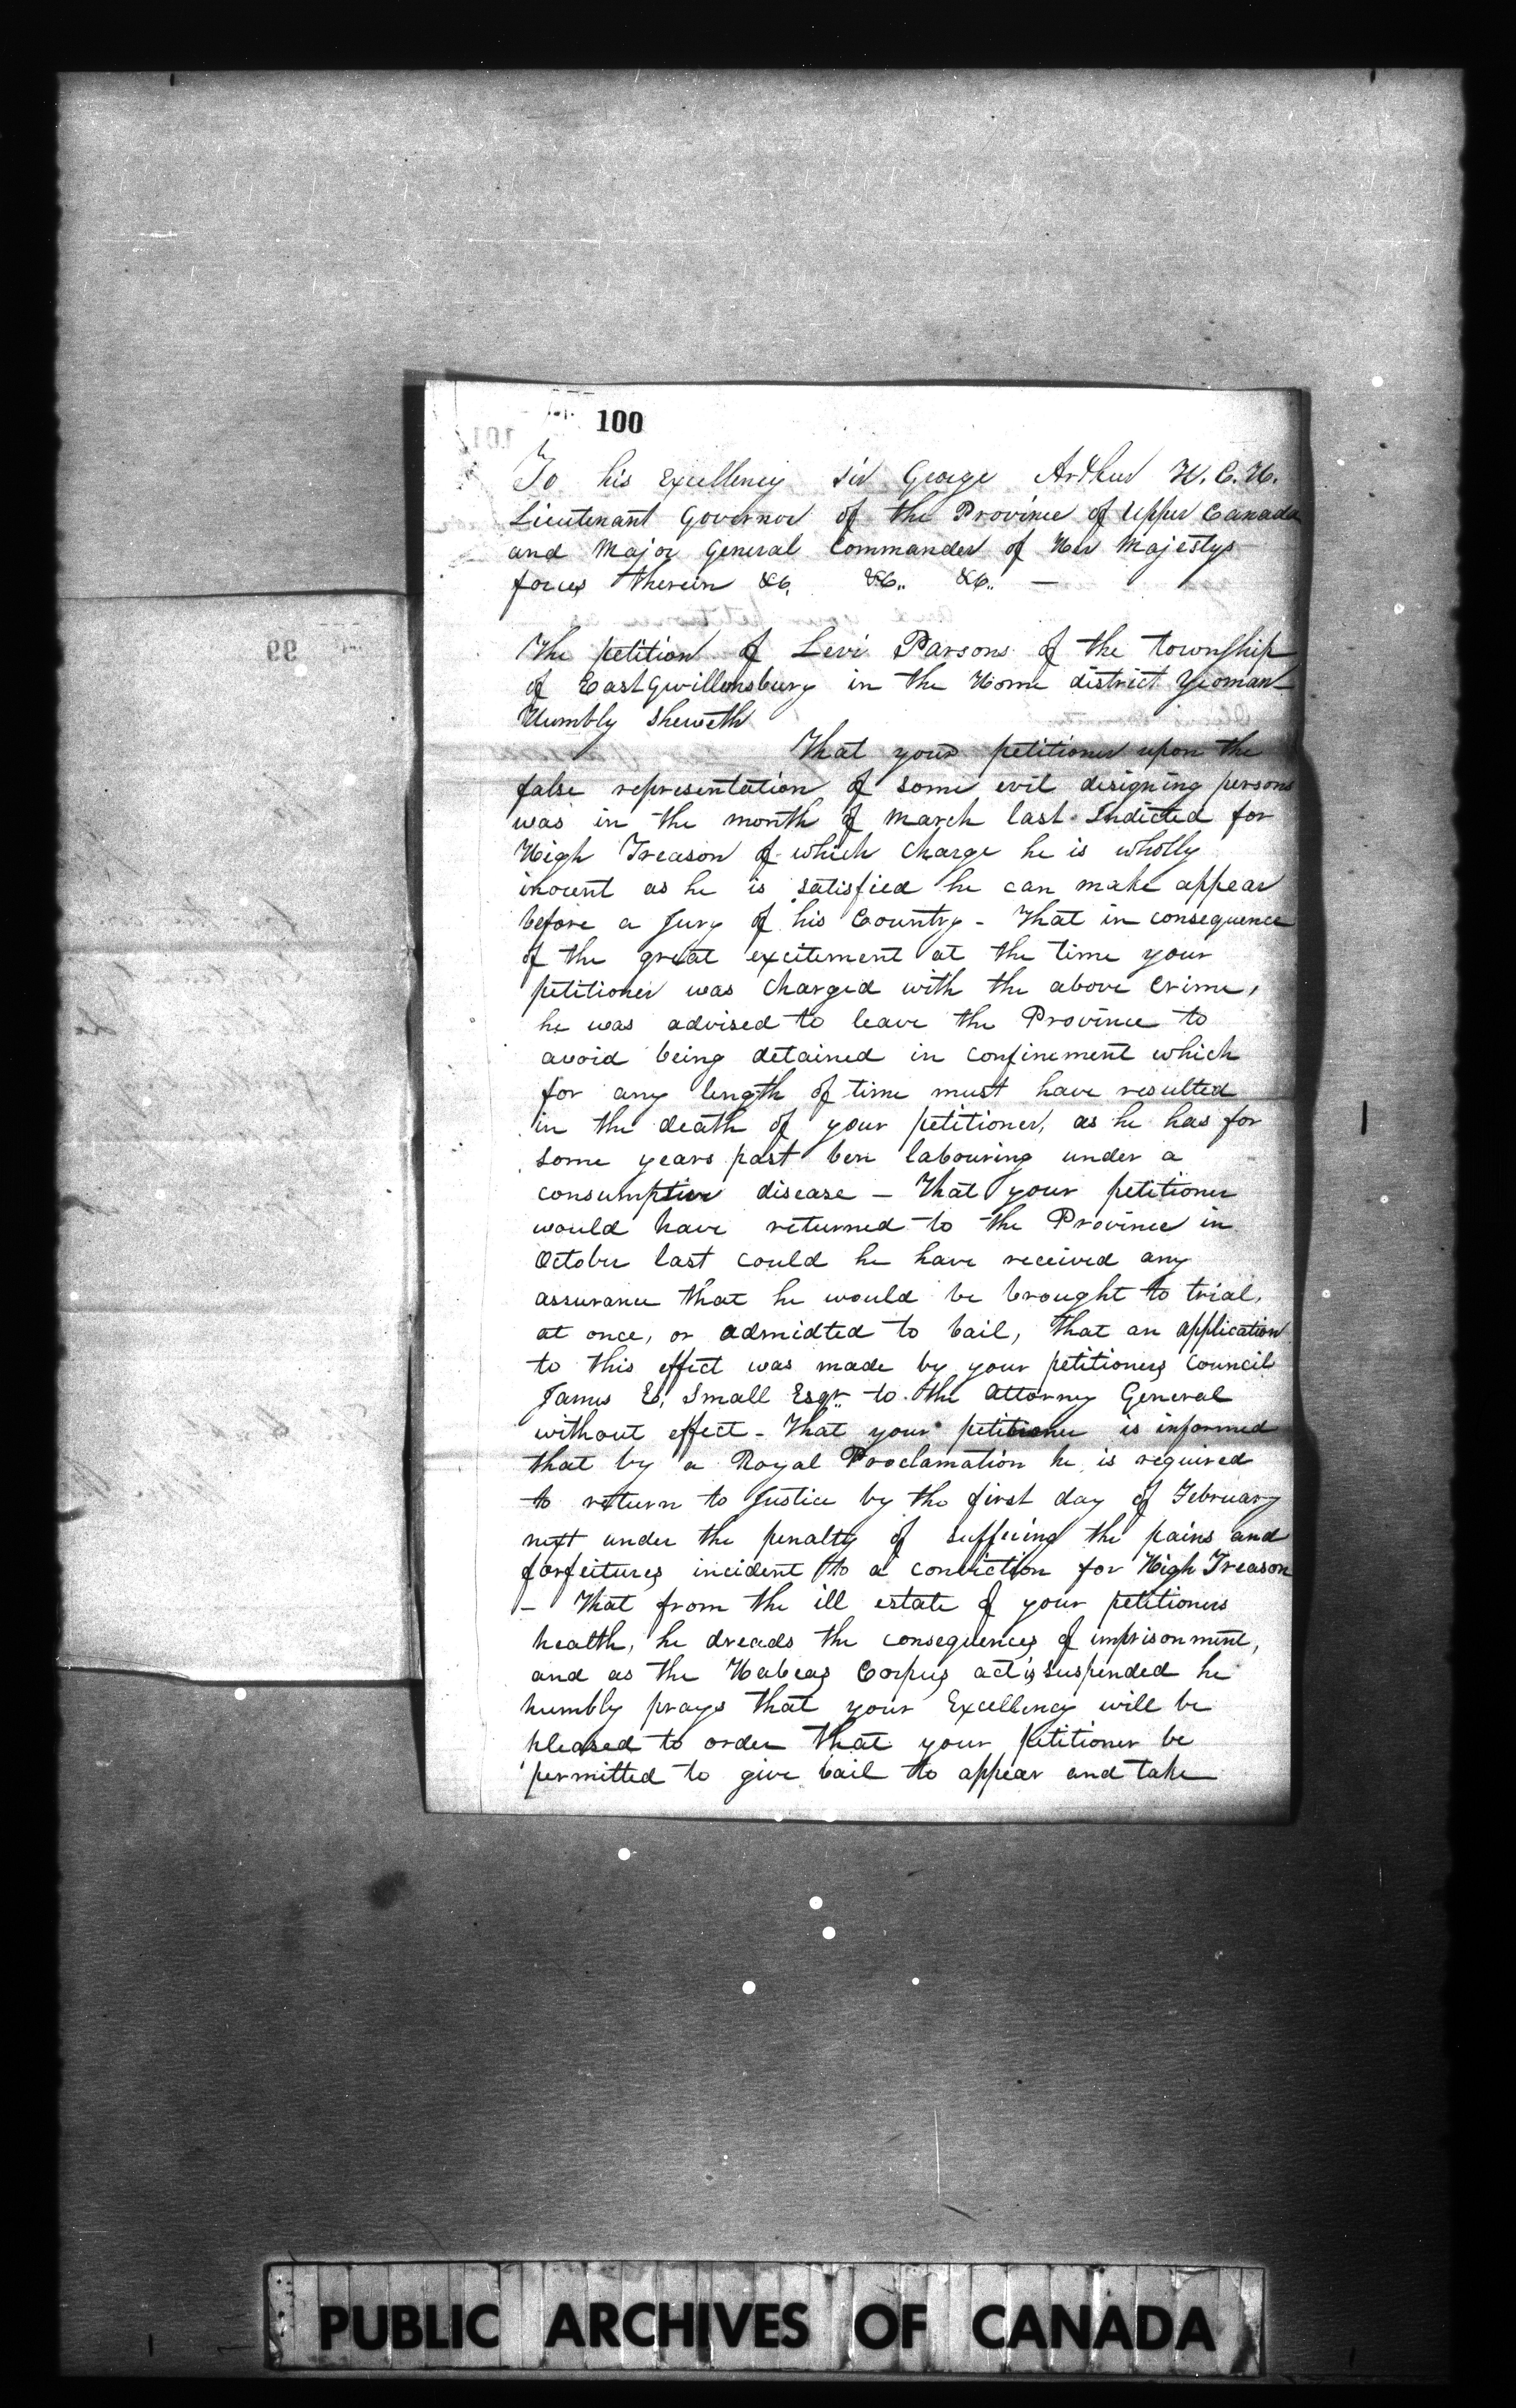 100
To his Excellency Sir George Arthur K.C.H.
Lieutenant Governor of the Province of Upper Canada
and Major General Commander of Her Majestys
forces therein &c. &c.. &c.. —
The petition of Levi Parsons of the township
of East Gwillimsburg in the Home district Yeoman
Humbly Sheweth
That your petitioner upon the
false representation of some evil designing persons
was in the month of March last Indicted for
High Treason of which Charge he is wholly
inocent as he is satisfied he can make appear
before a Jury of his Country - That in consequence
of the great excitement at the time your
petitioner was Charged with the above Crime,
he was advised to leave the Province to
avoid being detained in confinement which
for any length of time must have resulted
in the death of your petitioner, as he has for
some years past ben labouring under a
consumptive disease — That your petitioner
would have returned to the Province in
October last could he have received any
assurance that he would be brought to trial,
at once, or admidted to bail, that an application
to this effect was made by your petitioners Council
James E. Small Esqr.. to the Attorney General
without effect - That your petitioner is informed
that by a Royal Proclamation he is required
to return to Justice by the first day of February
next under the penalty of suffering the pains and
forfeitures incident to a conviction for High Treason
- That from the ill estate of your petitioners
health, he dreads the consequences of imprisonment,
and as the Habeas Corpus act is suspended he
humbly prays that your Excellency will be
pleased to order that your petitioner be
permitted to give bail to appear and take
99
PUBLIC ARCHIVES OF CANADA